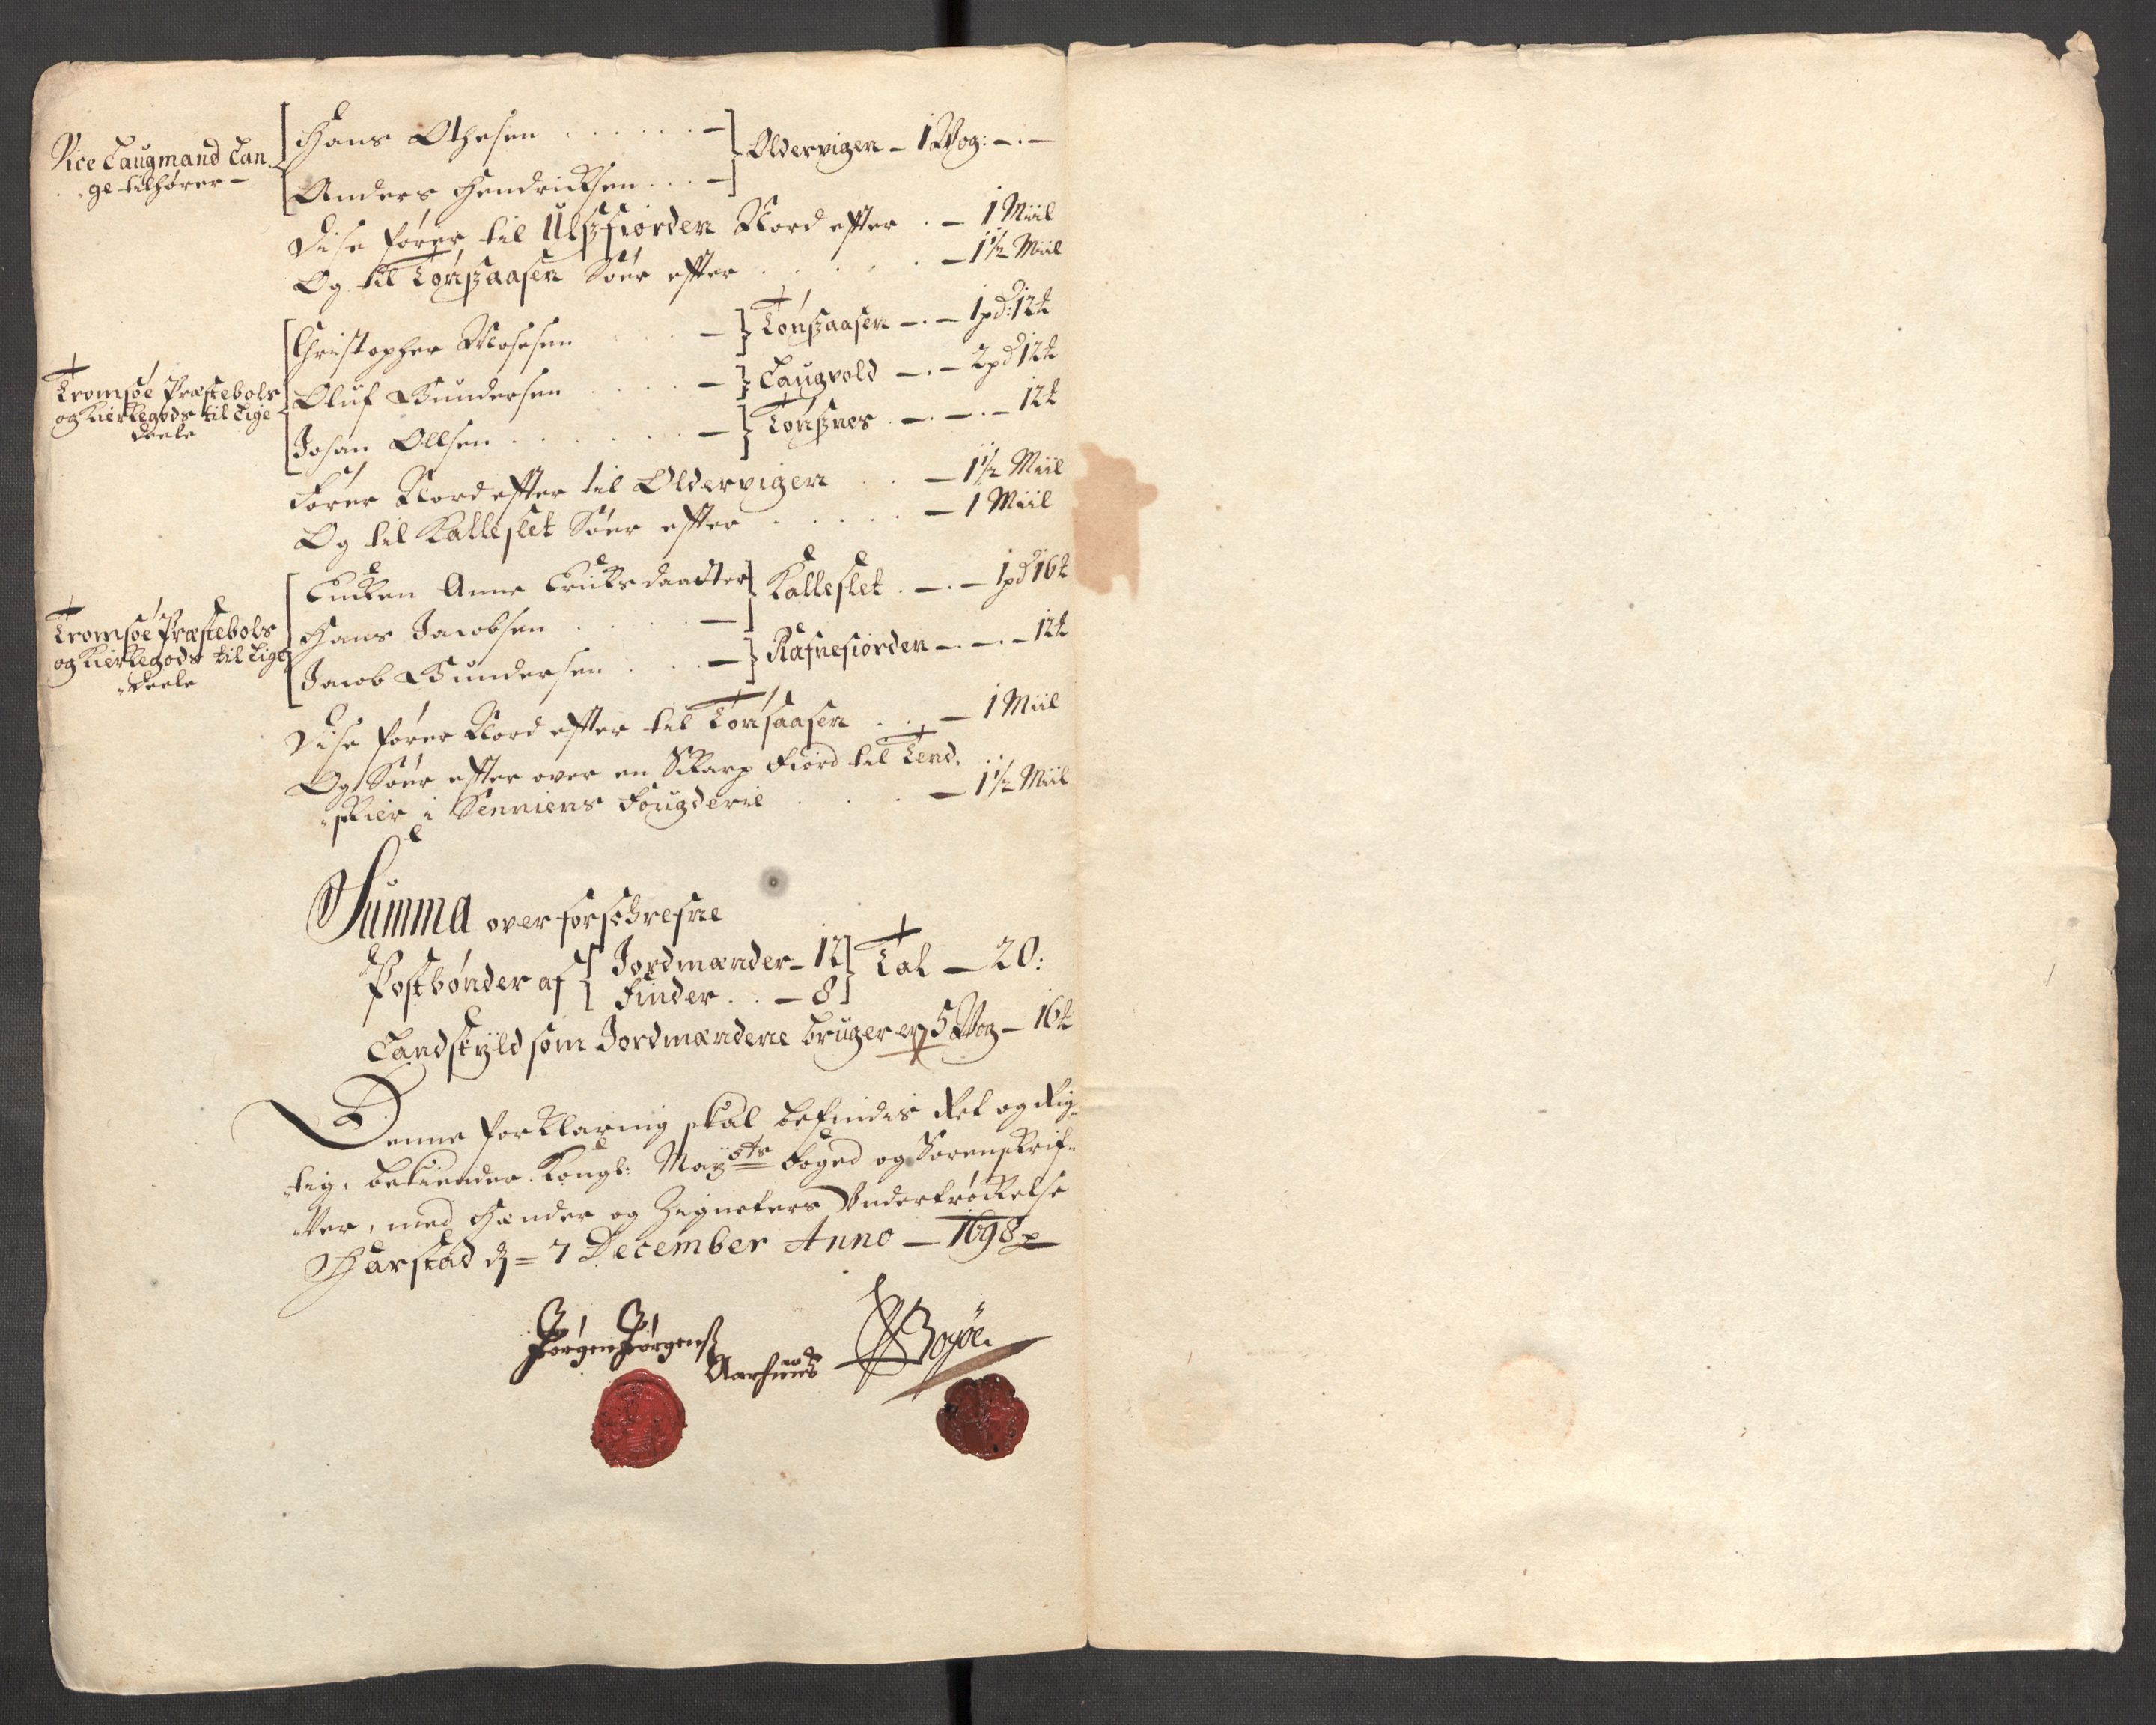 Vice Laugmand Lan-
ge tilhører –
Hans Othesen . . . . . . –
Anders Hendrichsen . . . –
Oldervigen – 1 Wog: – . –
Dise fører til Ulszfiorden Nord effter . – 1 Miil
Og til Tónszaasen Sóer effter . . . . . – 1½ Miil
Tromsøe Præstebols
og Kierkegods til Lige
deele
Christopher Mosesen . . . – Tónszaasen – . – 1 pd: 12 ℔
Oluf Gundersen . . . . – Laugvold – . – 2 pd 12 ℔
Johan Ollsen . . . . . . – Tónsznes . – . – . – 12 ℔
Fører Nord effter til Oldervigen . . – 1½ Miil
Og til Kalleslet Sóer effter . . . . . – 1 Miil
Tromsøe Præstebols
og Kierkegods til Lige
deele
Encken Anne Erichsdaatter
Hans Jacobsen . . . . . –
Kalleslet . – . – 1 pd 16 ℔
Jacob Gundersen . . . – Rafnefiorden – . – . – 12 ℔
Dise fører Nord effter til Tónsaasen . . – 1 Miil
Og Sóer effter over en Skarp Fiord til Tend-
skier i Senniens Fougderie . . . . – 1½ Miil
Summa over forschrefne
Postbønder af
Jordmænder – 12
Finder . . – 8
Tal – 20:
Landskyld som Jordmændene bruger er 5 Wog – 16 ℔
Denne forklaring skal befindis Ret og Rig-
tig, bekiender Kongl: Mayst: Foged og Sorenskrif-
ver, med Hænder og Zigneters Undertrøckelse
Harstad d = 7 December Anno – 1698
Jørgen Jørgensz
Aarhuus